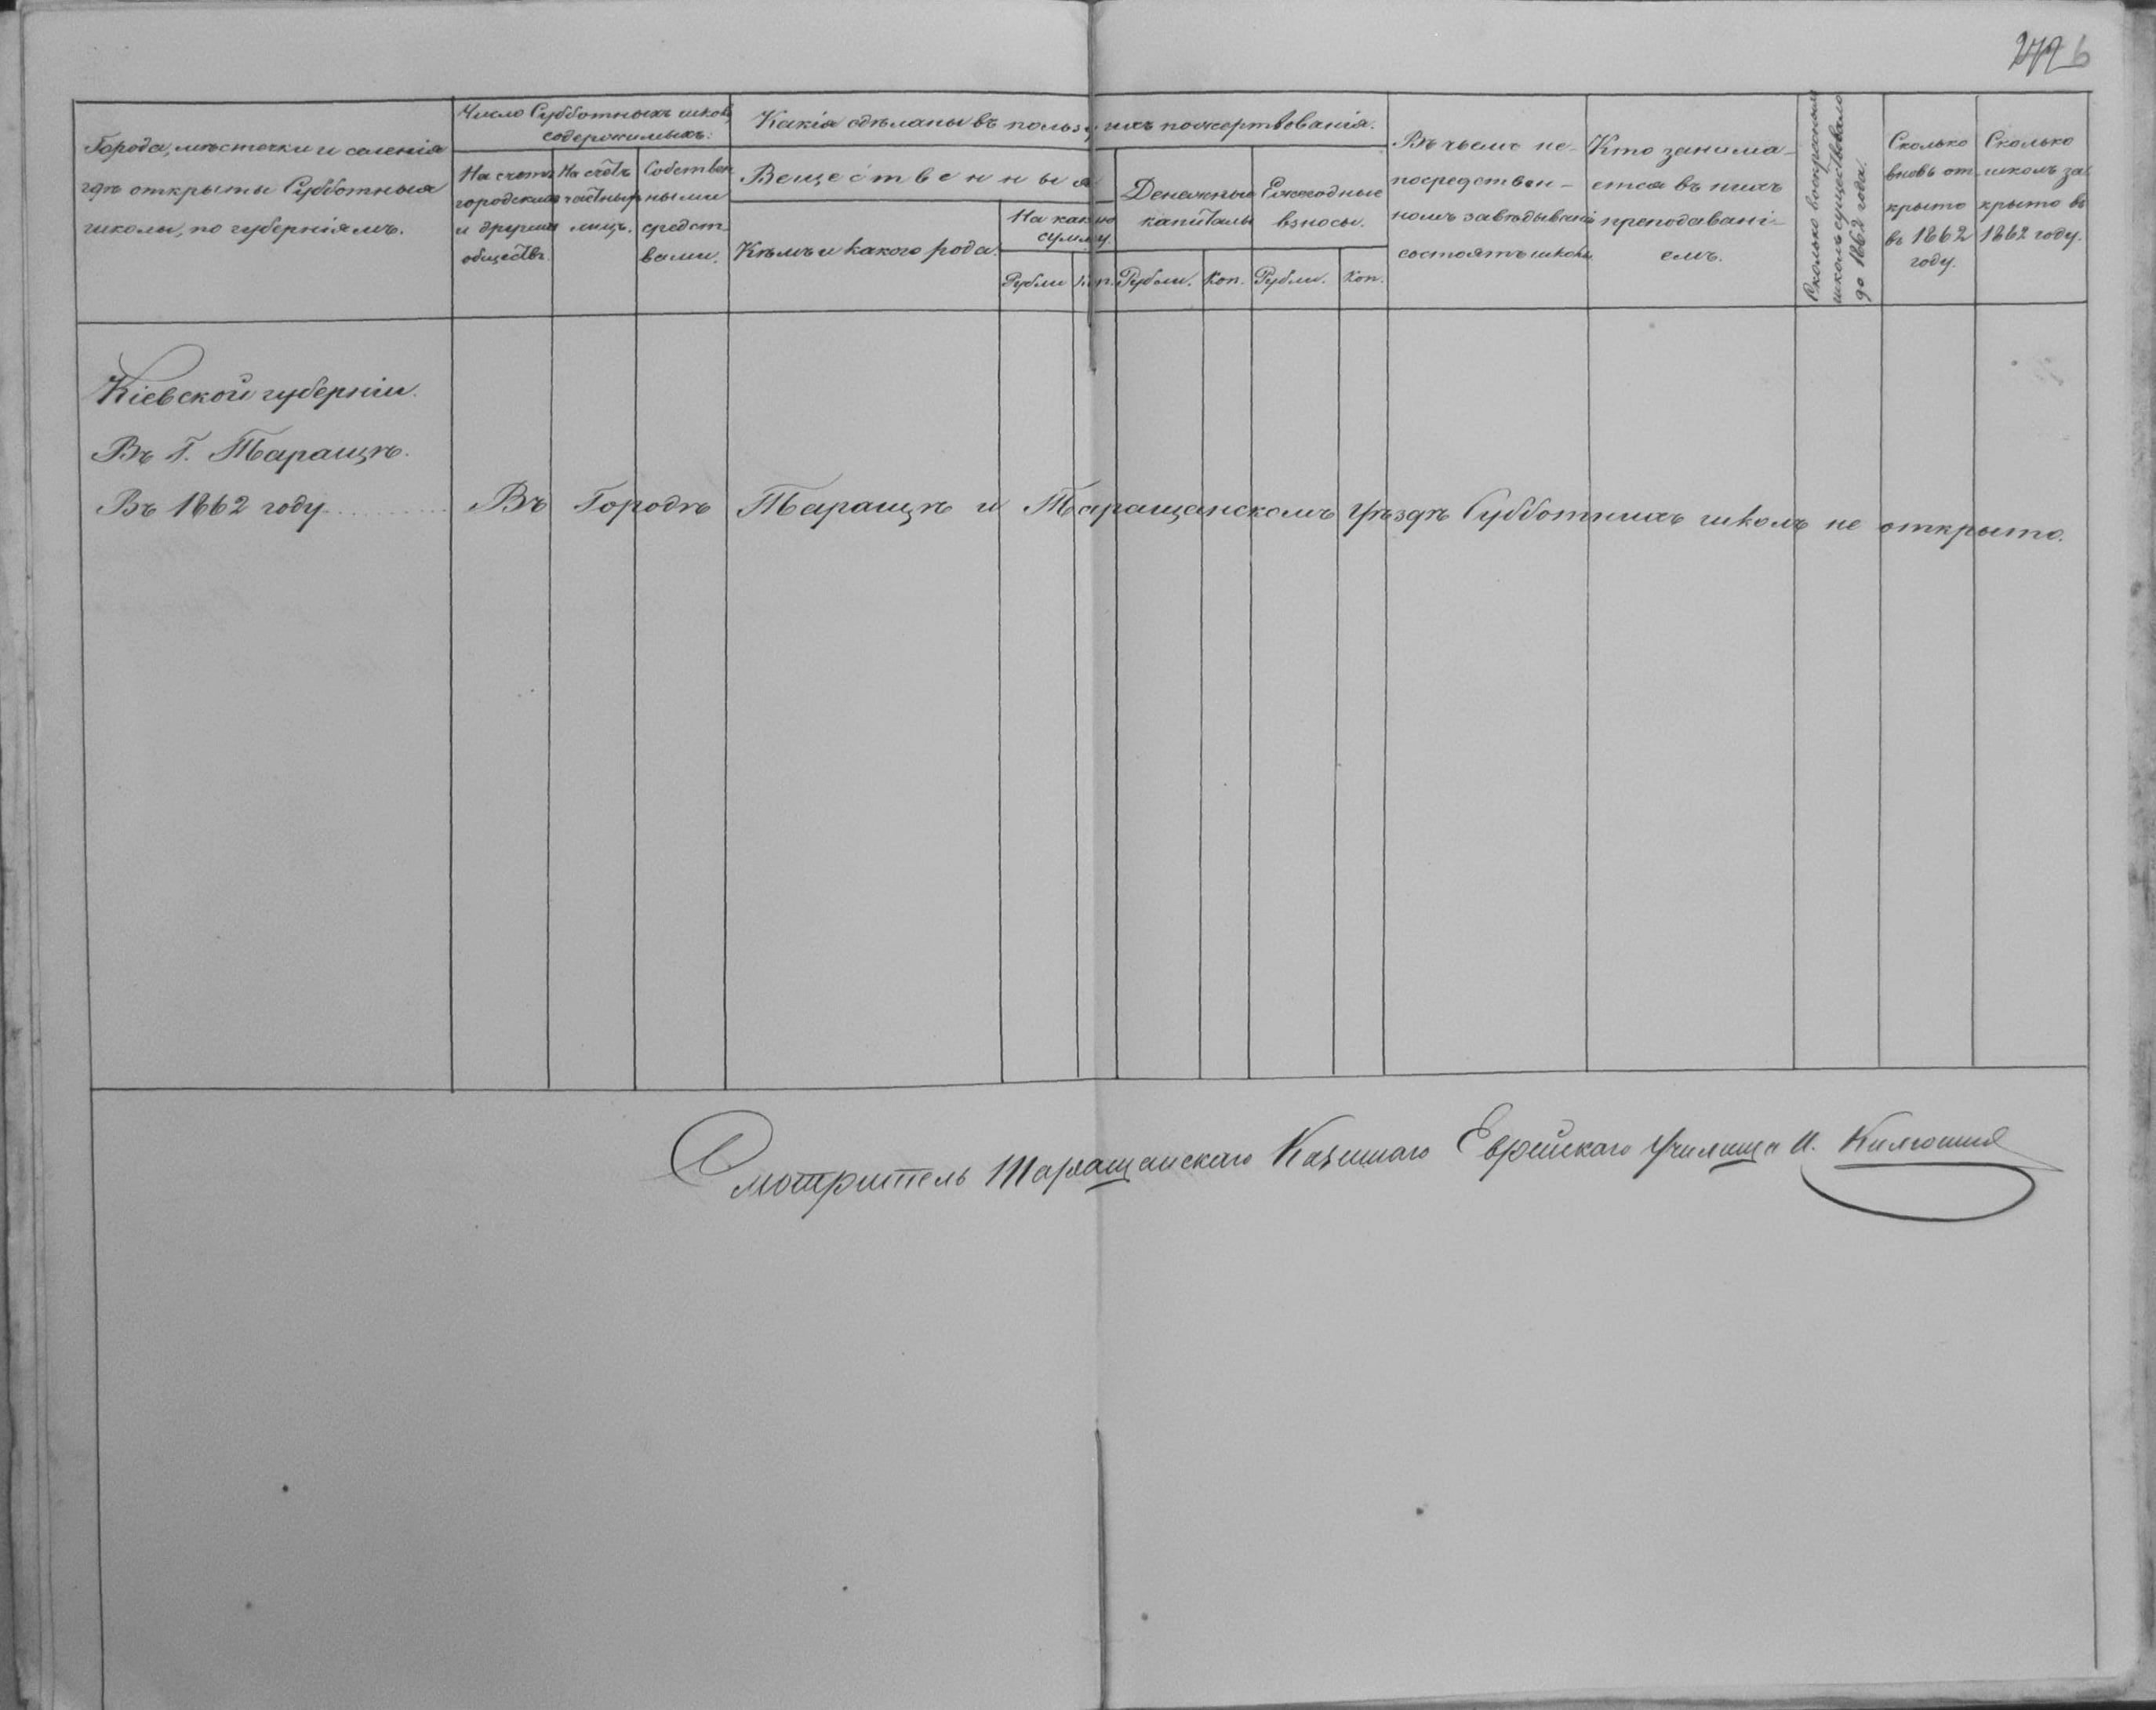 Города, мѣстечки и селенія
гдѣ открыты Субботныя
школы, по губерніямъ.
Число Субботныхъ школъ
содержимыхъ:
На счетъ
городскихъ
и другихъ
обществъ.
На счетъ
частныхъ
лицъ.
Собствен
ными
средст
вами.
Какія сдѣланы въ пользу ихъ пожертвованія.
Вещественныя
Кѣмъ и какого рода.
На какую
сумму.
Рубли
Коп.
Денежные
капиталы
Рубли.
Коп.
Ежегодные
взносы.
Рубли.
Коп.
Въ чьемъ не-
посредствен-
номъ завѣдываніи
состоятъ школы
Кто занима-
ется въ нихъ
преподавані-
емъ.
Сколько
школъ существовало
до 1862 года.
Сколько
вновь от
крыто
въ 1862
году.
Сколько
школъ за
крыто въ
1862 году.
Кіевской губерніи.
Въ Г. Таращѣ.
Въ 1862 году
Въ Городѣ Таращѣ и Таращанскомъ уѣздѣ Субботнихъ школъ не открыто.
Смотритель Таращанскаго Казеннаго Еврейскаго Училища И.